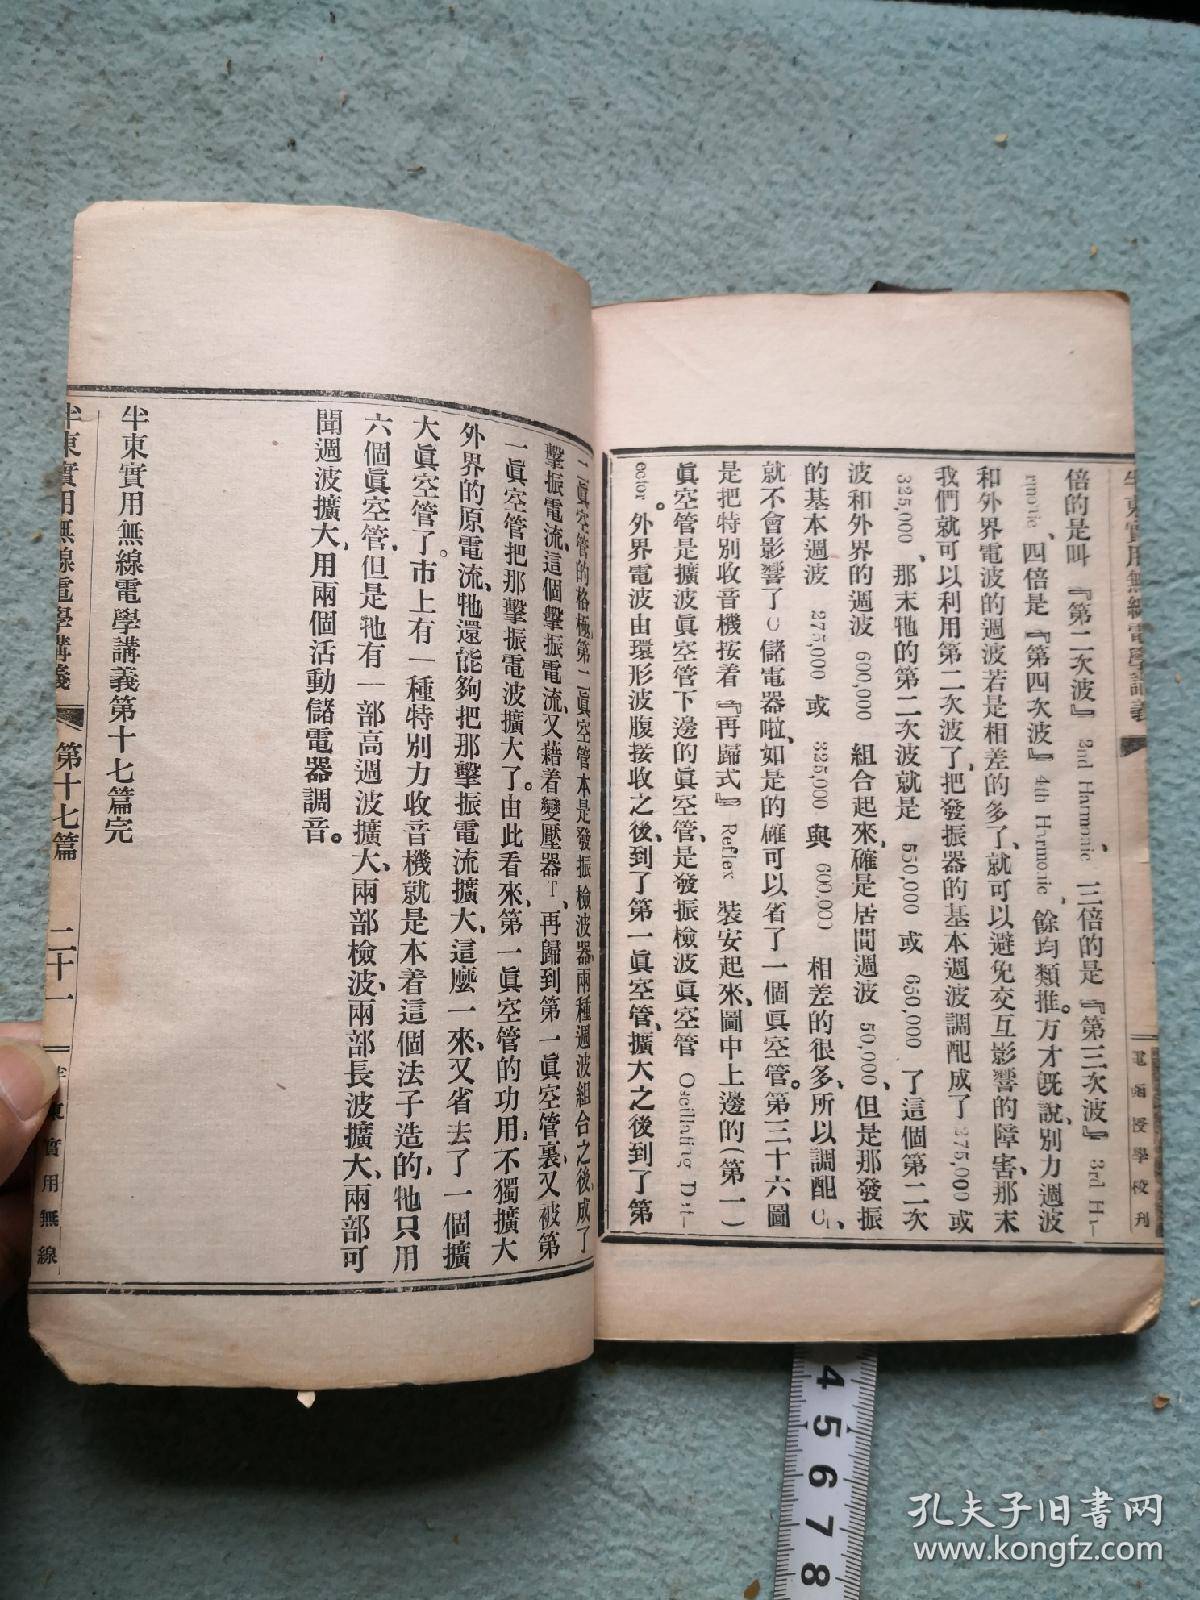 半東實用無線電學講義
電函授學校刊
倍的是叫『第二次波』2nd Harmonic、三倍的是『第三次波』3rd H-
rmonic、四倍是『第四次波』4th Harmonic、餘均類推。方才旣說、別力週波
和外界電波的週波若是相差的多了、就可以避免交互影響的障害、那末
我們就可以利用第二次波了、把發振器的基本週波調配成了 275,000 或
325,000、那末牠的第二次波就是 550,000 或 650,000 了這個第二次
波和外界的週波 600,000 組合起來、確是居間週波 50,000、但是那發振
的基本週波 275,000 或 325,000 與 600,000 相差的很多、所以調配
就不會影響了 儲電器啦、如是的確可以省了一個眞空管。第三十六圖
是把特別收音機按着『再歸式』Reflex 裝安起來、圖中上邊的(第一)
眞空管是擴波眞空管下邊的眞空管、是發振檢波眞空管 Oscillating Det-
ector。外界電波由環形波腹接收之後、到了第一眞空管、擴大之後到了第
二眞空管的格極、第二眞空管本是發振檢波器、兩種週波組合之後、成了
擊振電流、這個擊振電流、又藉着變壓器T、再歸到第一眞空管裏、又被第
一眞空管把那擊振電波擴大了。由此看來、第一眞空管的功用、不獨擴大
外界的原電流、牠還能夠把那擊振電流擴大、這麼一來、又省去了一個擴
大眞空管了。市上有一種特別力收音機就是本着這個法子造的、牠只用
六個眞空管、但是牠有一部高週波擴大、兩部檢波、兩部長波擴大、兩部可
聞週波擴大、用兩個活動儲電器調音。
半東實用無線電學講義第十七篇完
半東實用無線電學講義 第十七篇 二十一 半東實用無線
4 5 6 7 8
孔夫子旧书网
www.kongfz.com